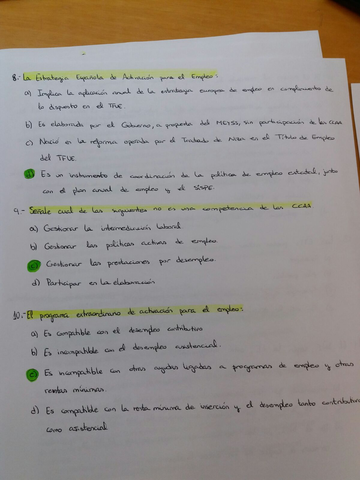 8.- La Estrategia Española de Activación para el Empleo:
a) Implica la aplicación anual de la estrategia europea de empleo en complemento de
lo dispuesto en el TFUE
b) Es elaborada por el Gobierno, a propuesta del MEYSS, sin participación de las CCAA
c) Nació en la reforma operada por el Tratado de Niza en el Título de Empleo
del TFUE.
d) Es un instrumento de coordinación de la política de empleo estatal, junto
con el plan anual de empleo y el SISPE.
9.- Señale cual de las siguientes no es una competencia de las CCAA
a) Gestionar la intermediación laboral
b) Gestionar las políticas activas de empleo
c) Gestionar las prestaciones por desempleo.
d) Participar en la elaboración
10.- El programa extraordinario de activación para el empleo:
a) Es compatible con el desempleo contributivo
b) Es incompatible con el desempleo asistencial.
c) Es incompatible con otras ayudas ligadas a programas de empleo y otras
rentas mínimas.
d) Es compatible con la renta mínima de inserción y el desempleo tanto contributivo
como asistencial